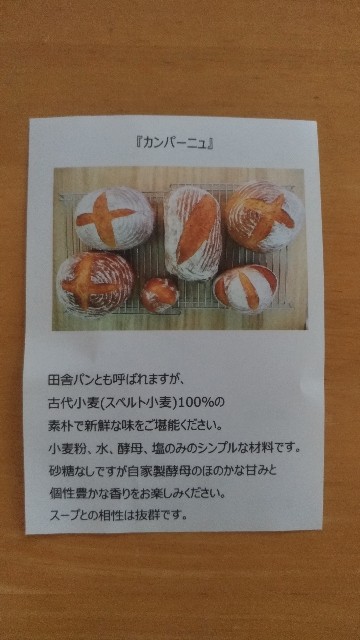 『カンパーニュ』
田舎パンとも呼ばれますが、
古代小麦(スペルト小麦)100%の
素朴で新鮮な味をご堪能ください。
小麦粉、水、酵母、塩のみのシンプルな材料です。
砂糖なしですが自家製酵母のほのかな甘みと
個性豊かな香りをお楽しみください。
スープとの相性は抜群です。